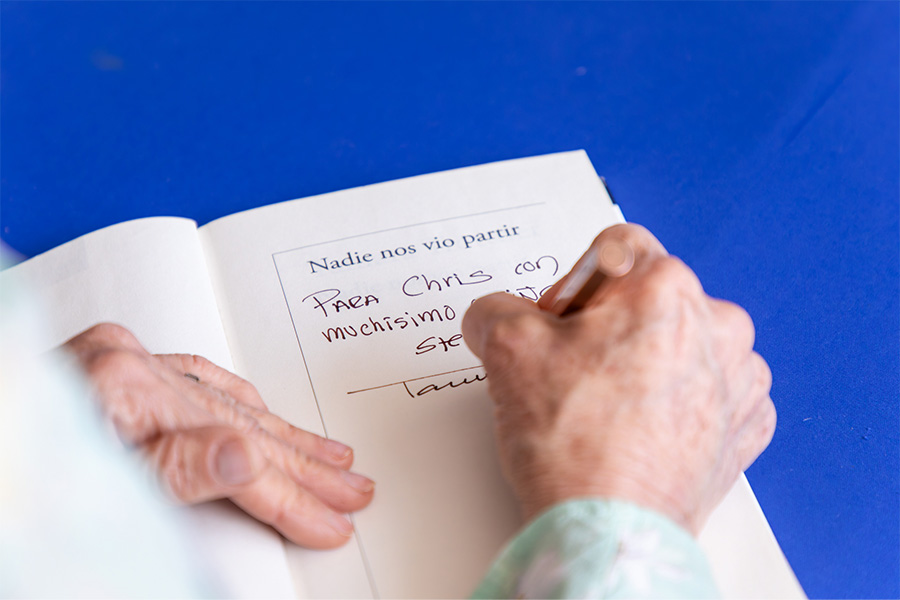 Nadie nos vio partir
PARA Chris con
muchísimo